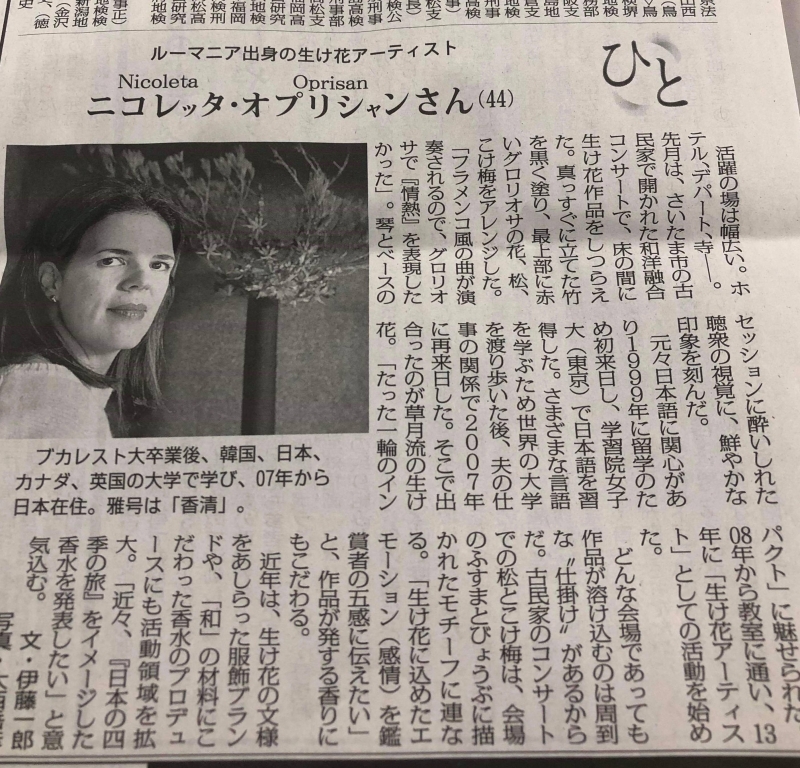 ひと
ルーマニア出身の生け花アーティスト
Nicoleta Oprisan
ニコレッタ・オプリシャンさん(44)
活躍の場は幅広い。ホ
テル、デパート、寺―。
先月は、さいたま市の古
民家で開かれた和洋融合
コンサートで、床の間に
生け花作品をしつらえ
た。真っすぐに立てた竹
を黒く塗り、最上部に赤
いグロリオサの花、松、
こけ梅をアレンジした。
「フラメンコ風の曲が演
奏されるので、グロリオ
サで『情熱』を表現した
かった」。琴とベースの
セッションに酔いしれた
聴衆の視覚に、鮮やかな
印象を刻んだ。
元々日本語に関心があ
り1999年に留学のた
め初来日し、学習院女子
大(東京)で日本語を習
得した。さまざまな言語
を学ぶため世界の大学
を渡り歩いた後、夫の仕
事の関係で2007年
に再来日した。そこで出
合ったのが草月流の生け
花。「たった一輪のイン
パクト」に魅せられた
08年から教室に通い、13
年に「生け花アーティス
ト」としての活動を始め
た。
どんな会場であっても
作品が溶け込むのは周到
な〝仕掛け〟があるから
だ。古民家のコンサート
での松とこけ梅は、会場
のふすまとびょうぶに描
かれたモチーフに連な
る。「生け花に込めたエ
モーション(感情)を鑑
賞者の五感に伝えたい」
と、作品が発する香りに
もこだわる。
近年は、生け花の文様
をあしらった服飾ブラン
ドや、「和」の材料にこ
だわった香水のプロデュ
ースにも活動領域を拡
大。「近々、『日本の四
季の旅』をイメージした
香水を発表したい」と意
気込む。
文・伊藤一郎
ブカレスト大卒業後、韓国、日本、
カナダ、英国の大学で学び、07年から
日本在住。雅号は「香清」。